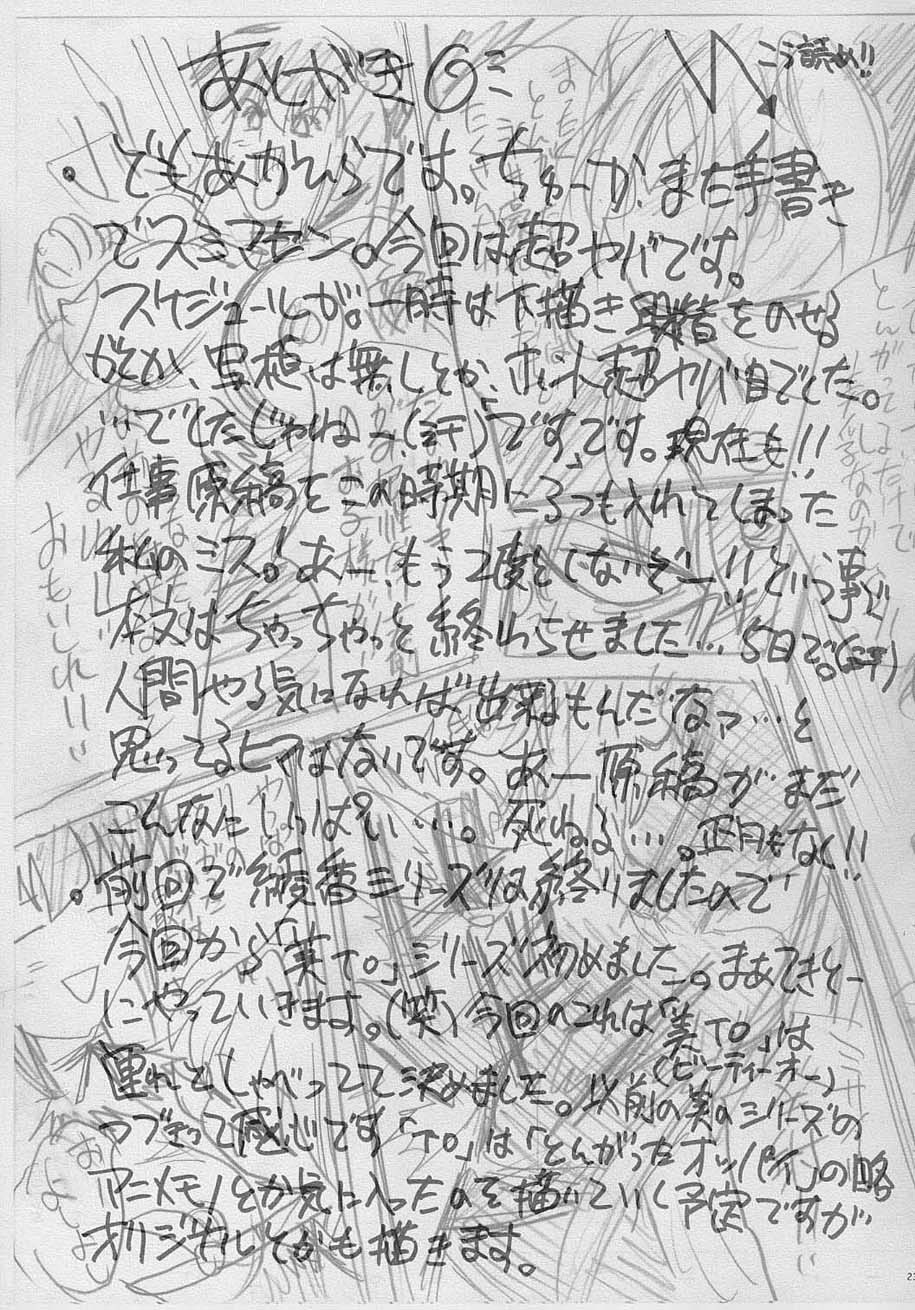 あとがき
こう読め!!
でも、あかひらです。ちゅーか、また手書き
でスミマセン。今回は超ヤバです。
スケジュールとか。一時は下描き まで をのせる
がとか、写植は無しとか、 超ヤバ目でした。
…でしたじゃねーっ、(汗)「です」です。現在も!!
仕事原稿をこの時期に3つも入れてしまった
私のミス!あー、もう2度としないぞー!!という事で
本文はちゃっちゃっと終わらせました…5日で。(汗)
人間やる気になれば出来るもんだなァ…と
思ってるヒマはないです。あー原稿がまだ
こんなにいっぱい…。死ねる…。正月もない!!
前回で綾香シリーズは終りましたので
今回から「美TO」シリーズ初めました。まあてきとー
にやっていきます。(笑)今回のこれは「美TO」は
(ビーティーオー)
連れとしゃべってて決めました。以前の美のシリーズの
つづきって感じです「TO」は「とんがったオッパイ」の略
アニメモノとか気に入ったのを描いていく予定ですが
オリジナルとかも描きます。
おもいしれ!!
23